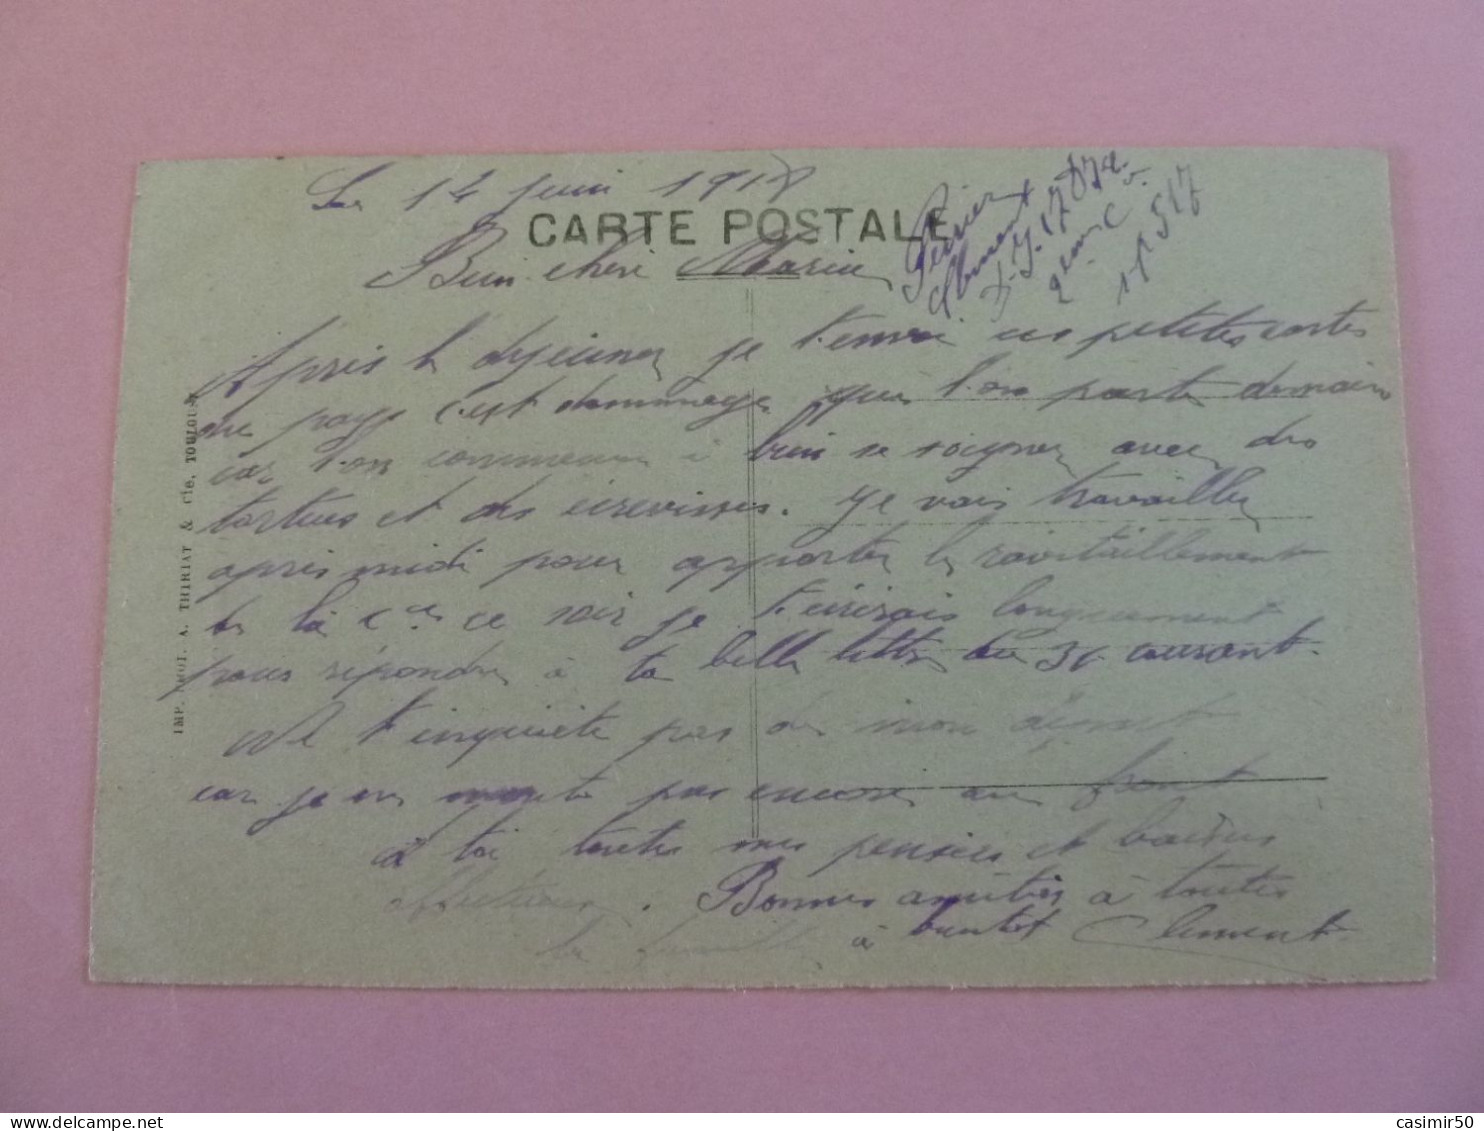 Le 14 Juin 1917
CARTE POSTALE
Bien chère Marie
Perrier
Clément
2em C
SP 517
Après le dejeuner je t'envoi ces petites cartes
du pays c'est dommage que l'on parte demain
car l'on commence à bien se soigner avec des
tortues et des écrevisses. Je vais travailler
après midi pour apporter le ravitaillement
de la Cie ce soir je t'écrirais longuement
pour répondre à ta belle lettre du 30 courant.
Ne t'inquiète pas de mon départ
car je ne monte pas encore au front
à toi toutes mes pensées et baisers
affectueux. Bonnes amitiés à toutes
la famille à bientot Clement
IMP. PHOT. A. THIRIAT & Cie, TOULOUSE
casimir50